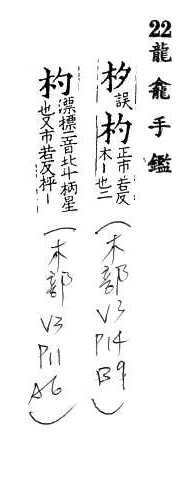 22龍龕手鑑
杉誤杓正市若反木丨也二
(木部 V3 P14 B9)
杓漂標二音北斗柄星也又市若反杯丨
(木部 V3 P11 A6)